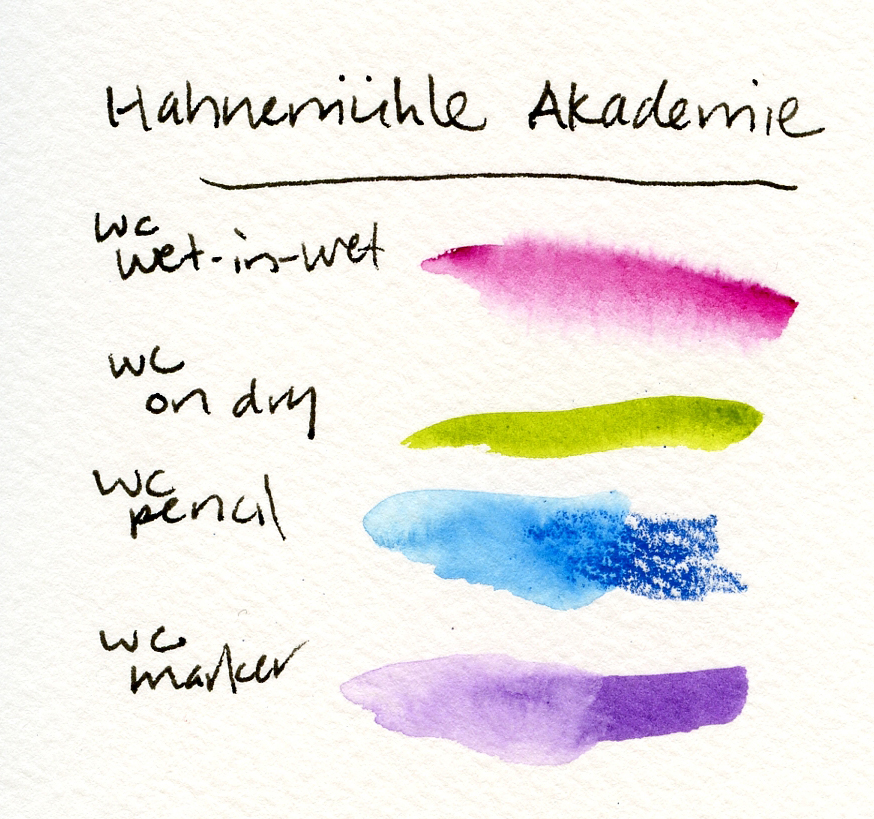 Hahnemühle Akademie
wc
wet-in-wet
wc
on dry
wc
pencil
wc
marker